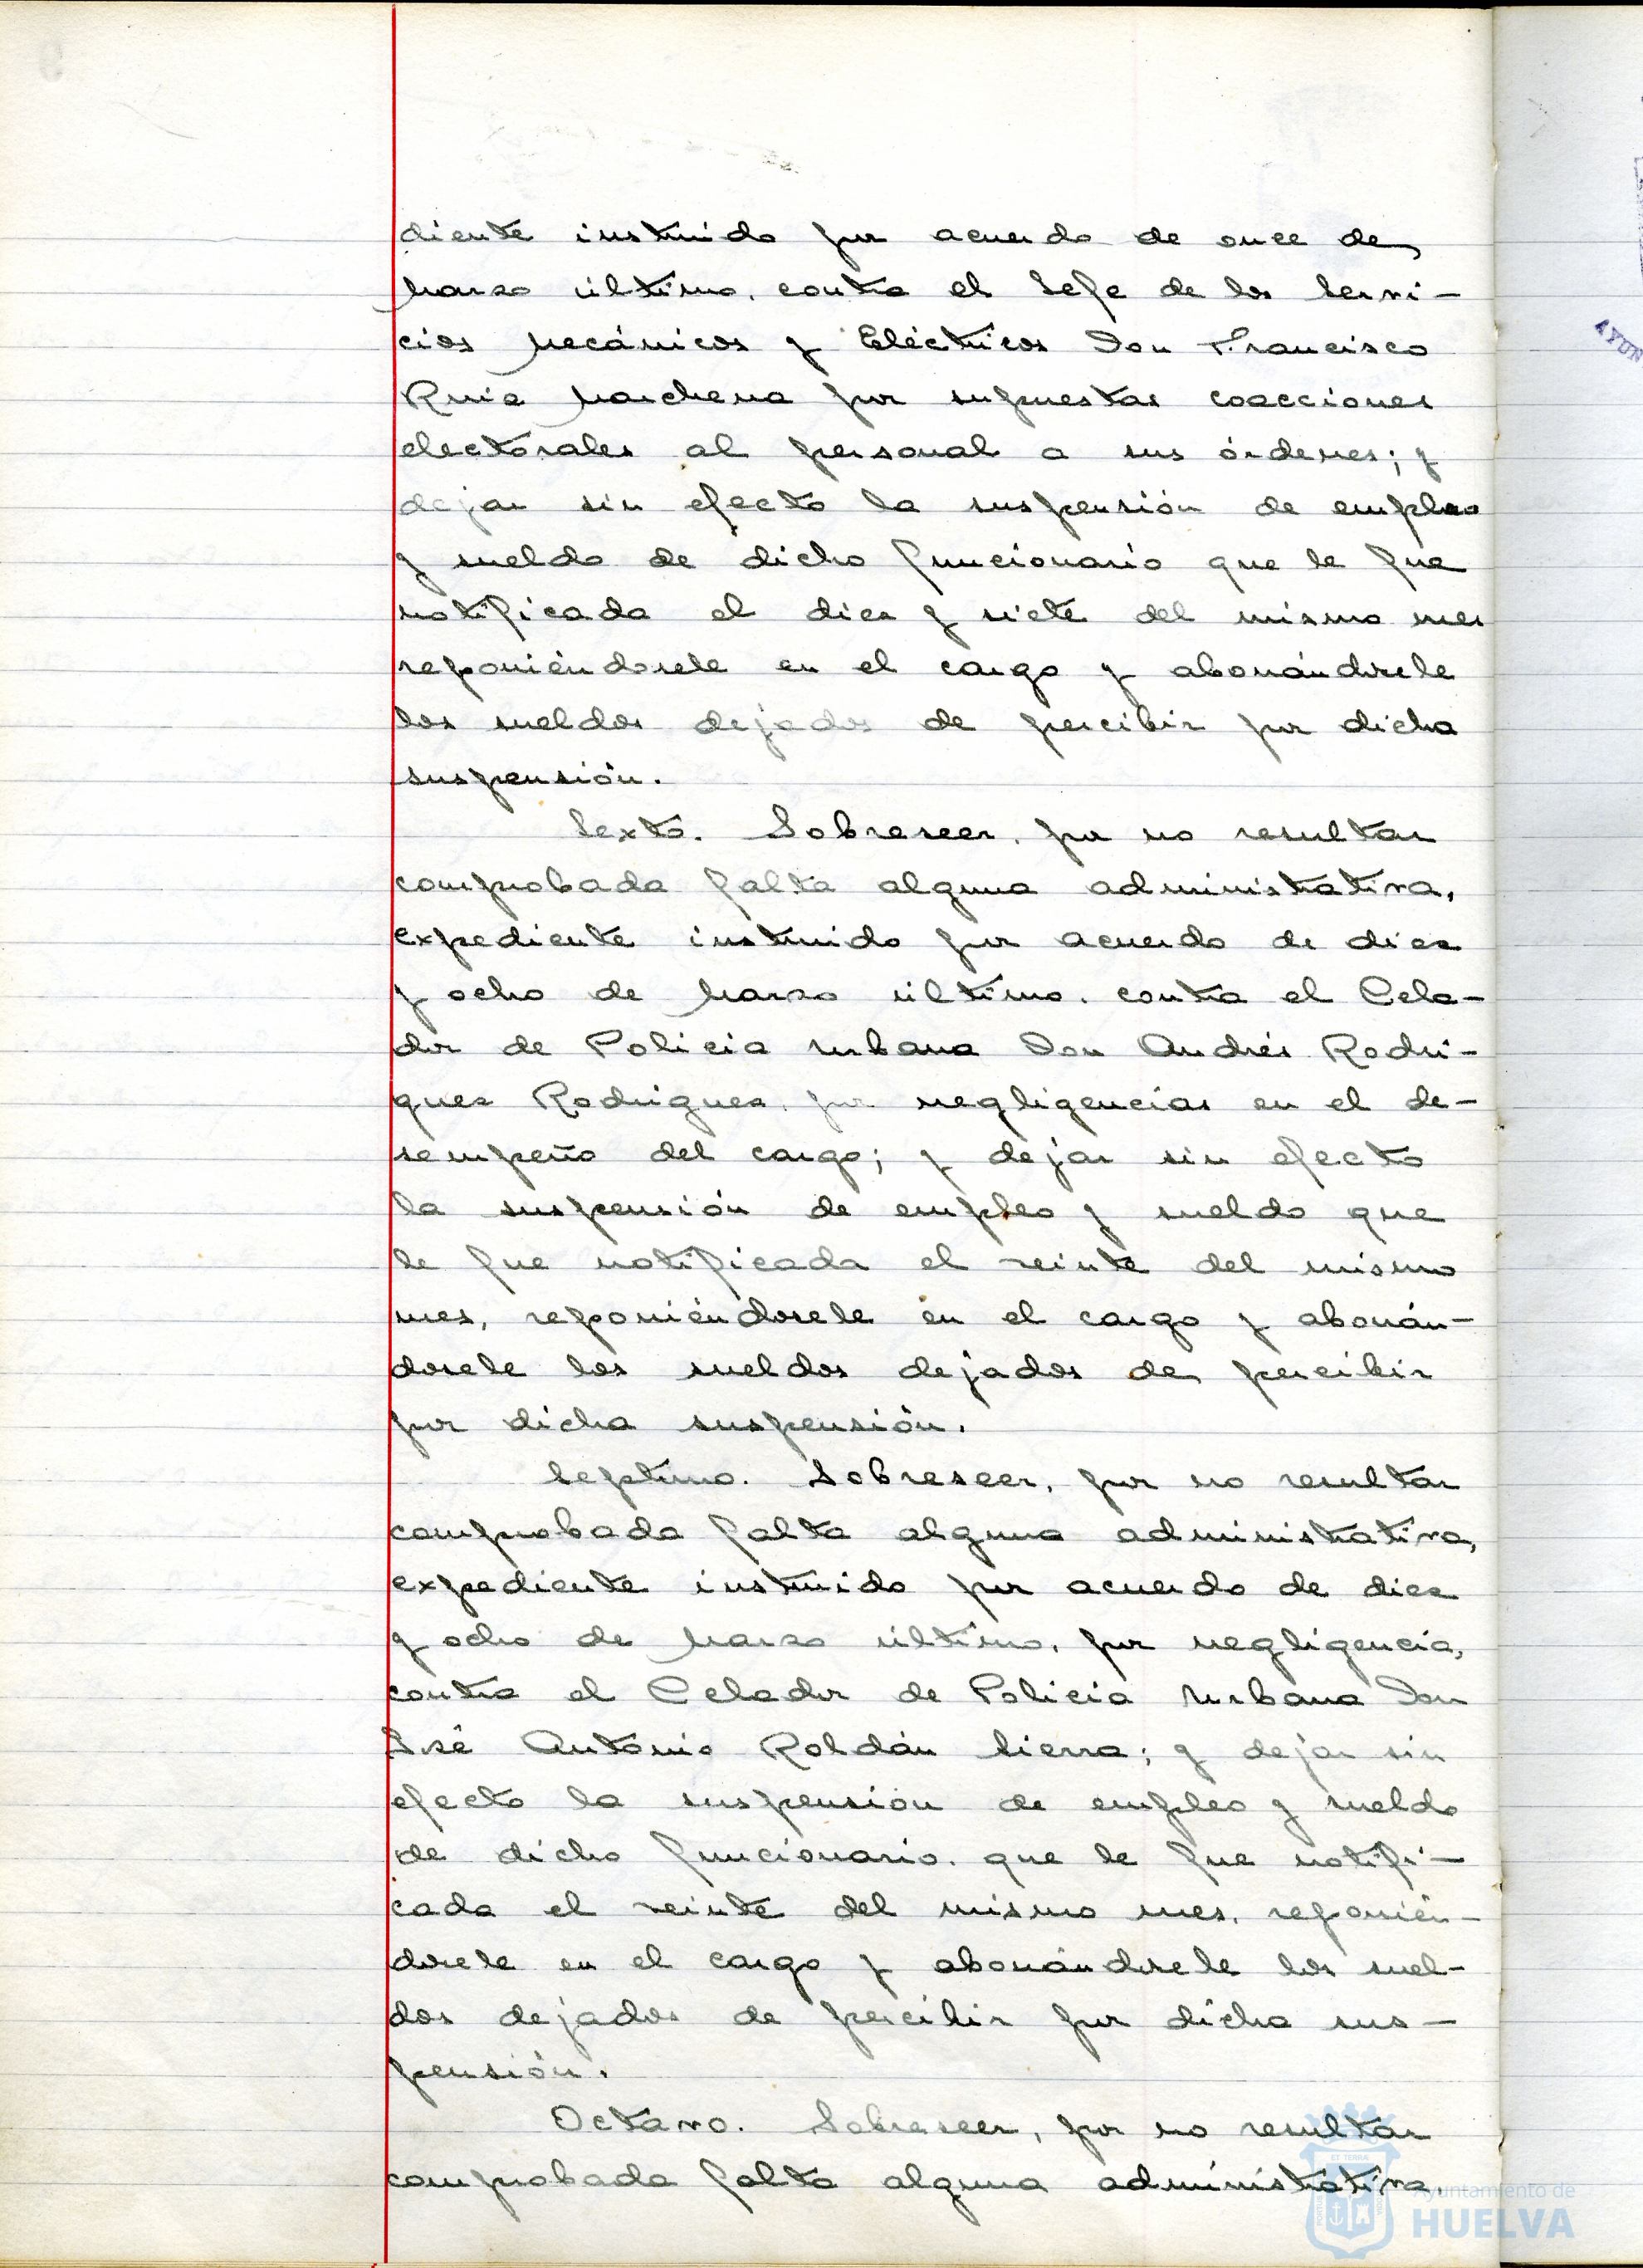 diente instruido por acuerdo de once de
Marzo último, contra el Jefe de los Servi-
cios Mecánicos y Eléctricos Don Francisco
Ruiz Marchena por supuestas coacciones
electorales al personal a sus órdenes; y
dejar sin efecto la suspensión de empleo
y sueldo de dicho funcionario que le fue
notificada el diez y siete del mismo mes
reponiéndosele en el cargo y abonándosele
los sueldos dejados de percibir por dicha
suspensión.
Sexto. Sobreseer, por no resultar
comprobada falta alguna administrativa,
expediente instruido por acuerdo de diez
y ocho de Marzo último, contra el Cela-
dor de Policia Urbana Don Andrés Rodrí-
guez Rodriguez, por negligencias en el de-
sempeño del cargo; y dejar sin efecto
la suspensión de empleo y sueldo que
le fue notificada el veinte del mismo
mes, reponiéndosele en el cargo y abonán-
dosele los sueldos dejados de percibir
por dicha suspensión.
Septimo. Sobreseer, por no resultar
comprobada falta alguna administrativa,
expediente instruido por acuerdo de diez
y ocho de Marzo último, por negligencia,
contra el Celador de Policia Urbana Don
José Antonio Roldán Sierra; y dejar sin
efecto la suspensión de empleo y sueldo
de dicho funcionario, que le fue notifi-
cada el veinte del mismo mes, reponién-
dosele en el cargo y abonándosele los suel-
dos dejados de percibir por dicha sus-
pensión.
Octavo. Sobreseer, por no resultar
comprobada falta alguna administrativa,
Ayuntamiento de
HUELVA